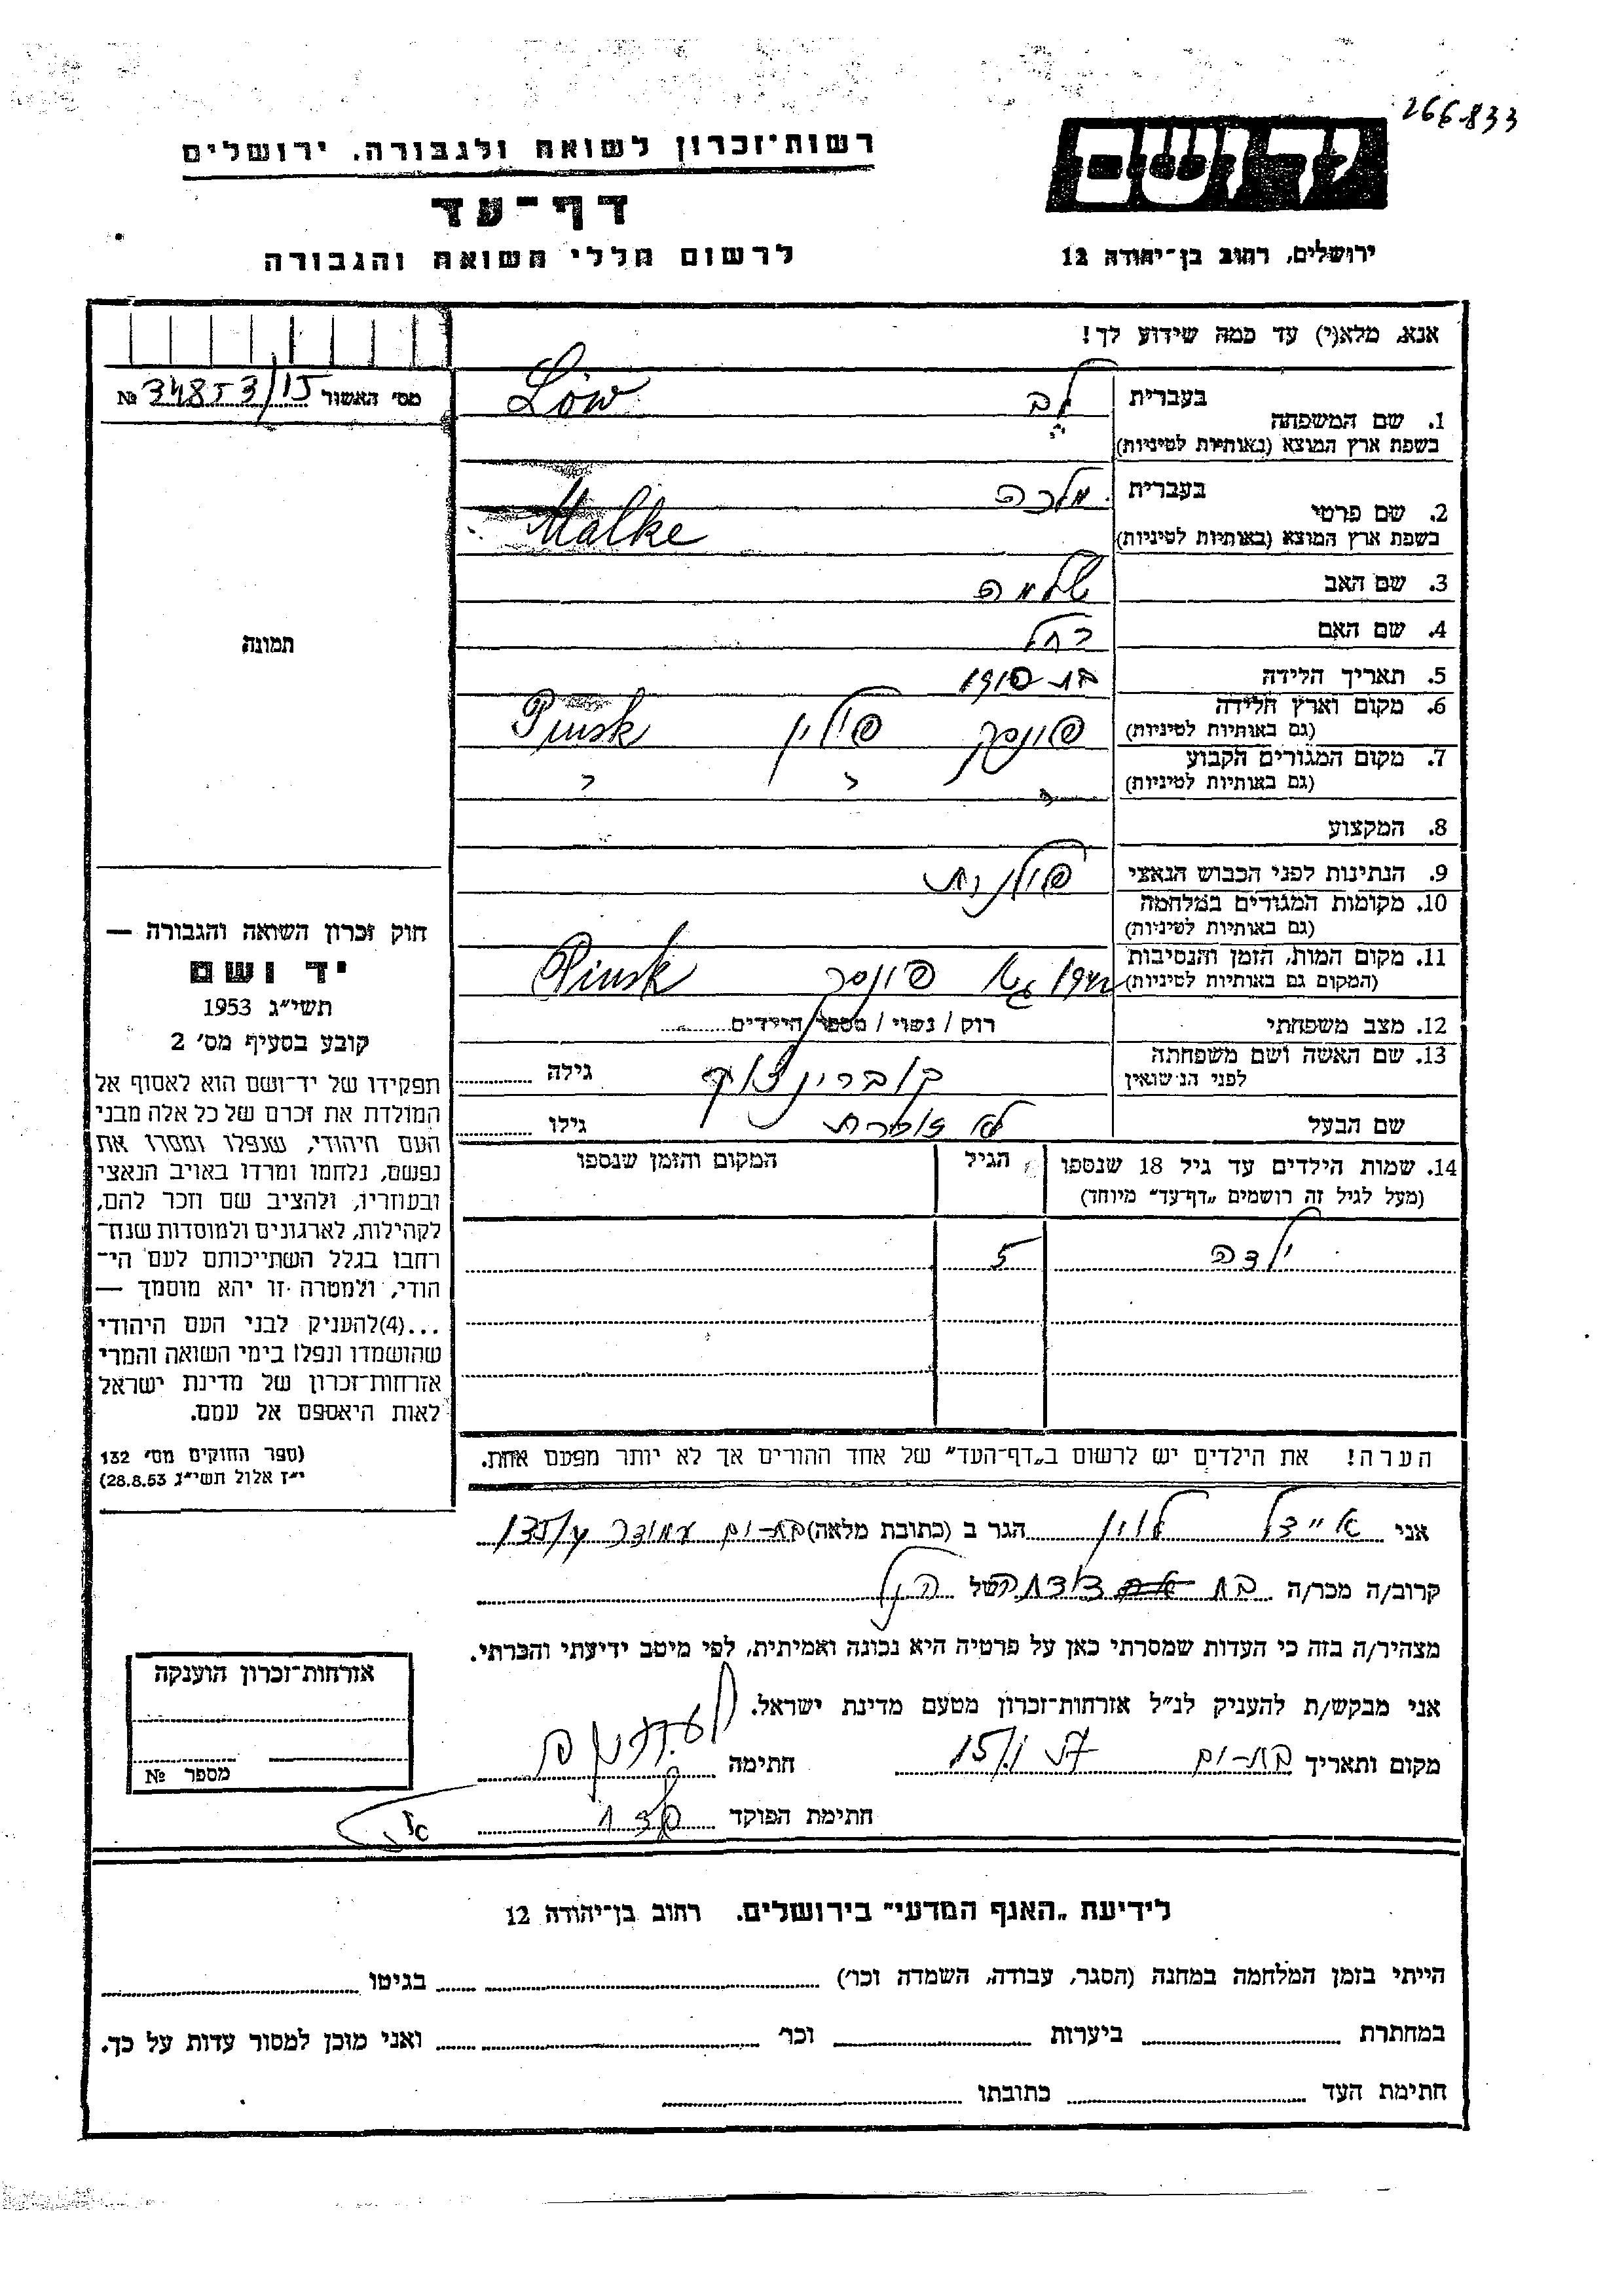 266833
רשות־זכרון לשואה ולגבורה. ירושלים
יד ושם
דף־עד
לרשום חללי השואה והגבורה
ירושלים, רחוב בן־יהודה 12
אנא, מלא(י) עד כמה שידוע לך!
מס׳ האשור № 34853/15
1. שם המשפחה
בעברית לב
בשפת ארץ המוצא (באותיות לטיניות) Löw
2. שם פרטי
בעברית מלכה
בשפת ארץ המוצא (באותיות לטיניות) Malke
3. שם האב שלמה
4. שם האם רחל
תמונה
5. תאריך הלידה 1910
6. מקום וארץ הלידה
(גם באותיות לטיניות) פינסק פולין Pinsk
7. מקום המגורים הקבוע
(גם באותיות לטיניות) " " "
8. המקצוע
9. הנתינות לפני הכבוש הנאצי פולנית
10. מקומות המגורים במלחמה
(גם באותיות לטיניות)
11. מקום המות, הזמן והנסיבות
(המקום גם באותיות לטיניות) פינסק Pinsk
12. מצב משפחתי רוק / נשוי / מספר הילדים
13. שם האשה ושם משפחתה
לפני הנישואין גילה
שם הבעל לא זוכרת גילו
14. שמות הילדים עד גיל 18 שנספו
(מעל לגיל זה רושמים „דף־עד״ מיוחד)
הגיל
המקום והזמן שנספו
ילדה 5
הערה! את הילדים יש לרשום ב„דף־העד״ של אחד ההורים אך לא יותר מפעם אחת.
חוק זכרון השואה והגבורה —
יד ושם
תשי״ג 1953
קובע בסעיף מס׳ 2
תפקידו של יד־ושם הוא לאסוף אל
המולדת את זכרם של כל אלה מבני
העם היהודי, שנפלו ומסרו את
נפשם, נלחמו ומרדו באויב הנאצי
ובעוזריו, ולהציב שם וזכר להם,
לקהילות, לארגונים ולמוסדות שנח־
רחבו בגלל השתייכותם לעם הי־
הודי, ולמטרה זו יהא מוסמך —
...(4)להעניק לבני העם היהודי
שהושמדו ונפלו בימי השואה והמרי
אזרחות־זכרון של מדינת ישראל
לאות היאספם אל עמם.
(ספר החוקים מס׳ 132
י״ז אלול תשי״ג 28.8.53)
אני אידל לוין הגר ב (כתובת מלאה) בת-ים
קרוב/ה מכר/ה בת דודתה של הנ״ל
מצהיר/ה בזה כי העדות שמסרתי כאן על פרטיה היא נכונה ואמיתית, לפי מיטב ידיעתי והכרתי.
אני מבקש/ת להעניק לנ״ל אזרחות־זכרון מטעם מדינת ישראל.
מקום ותאריך בת-ים חתימה
חתימת הפוקד
אזרחות־זכרון הוענקה
מספר №
לידיעת „האגף המדעי״ בירושלים. רחוב בן־יהודה 12
הייתי בזמן המלחמה במחנה (הסגר, עבודה, השמדה וכו׳) בגיטו
במחתרת ביערות וכו׳ ואני מוכן למסור עדות על כך.
חתימת העד כתובתו